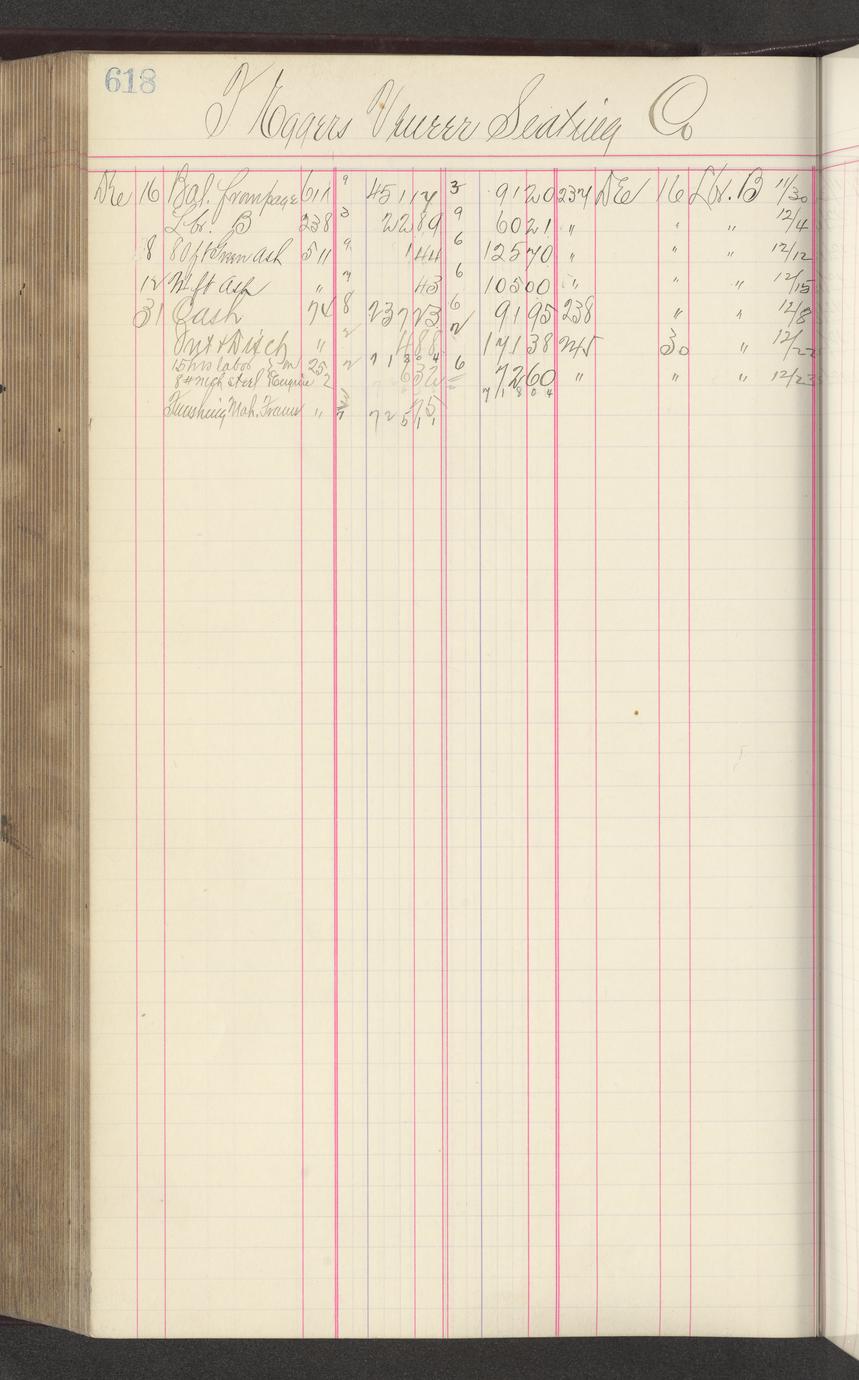 618
F Eggers Veneer Seating Co
Dec 16 Bal. from page 611 9 451 17 3 91 20 237 Dec 16 Lbr. B 11/30
Lbr. B 238 3 22 89 9 60 21 " " " 12/4
8 80 ft Green Ash 511 9 1 44 6 125 70 " " " 12/12
12 ft Ash " 7 43 6 105 00 " " " 12/15
31 Cash 74 8 237 23 6 91 95 238 " " 12/8
Int & Disch " 2 4 88 2 171 38 245 30 " 12/22
15 hrs labor 25 2 713 04 6 72 60 " " " 12/23
8 # high steel Engine 2 6 32
718 04
Finishing Mah. Frame " 7 75
725 11